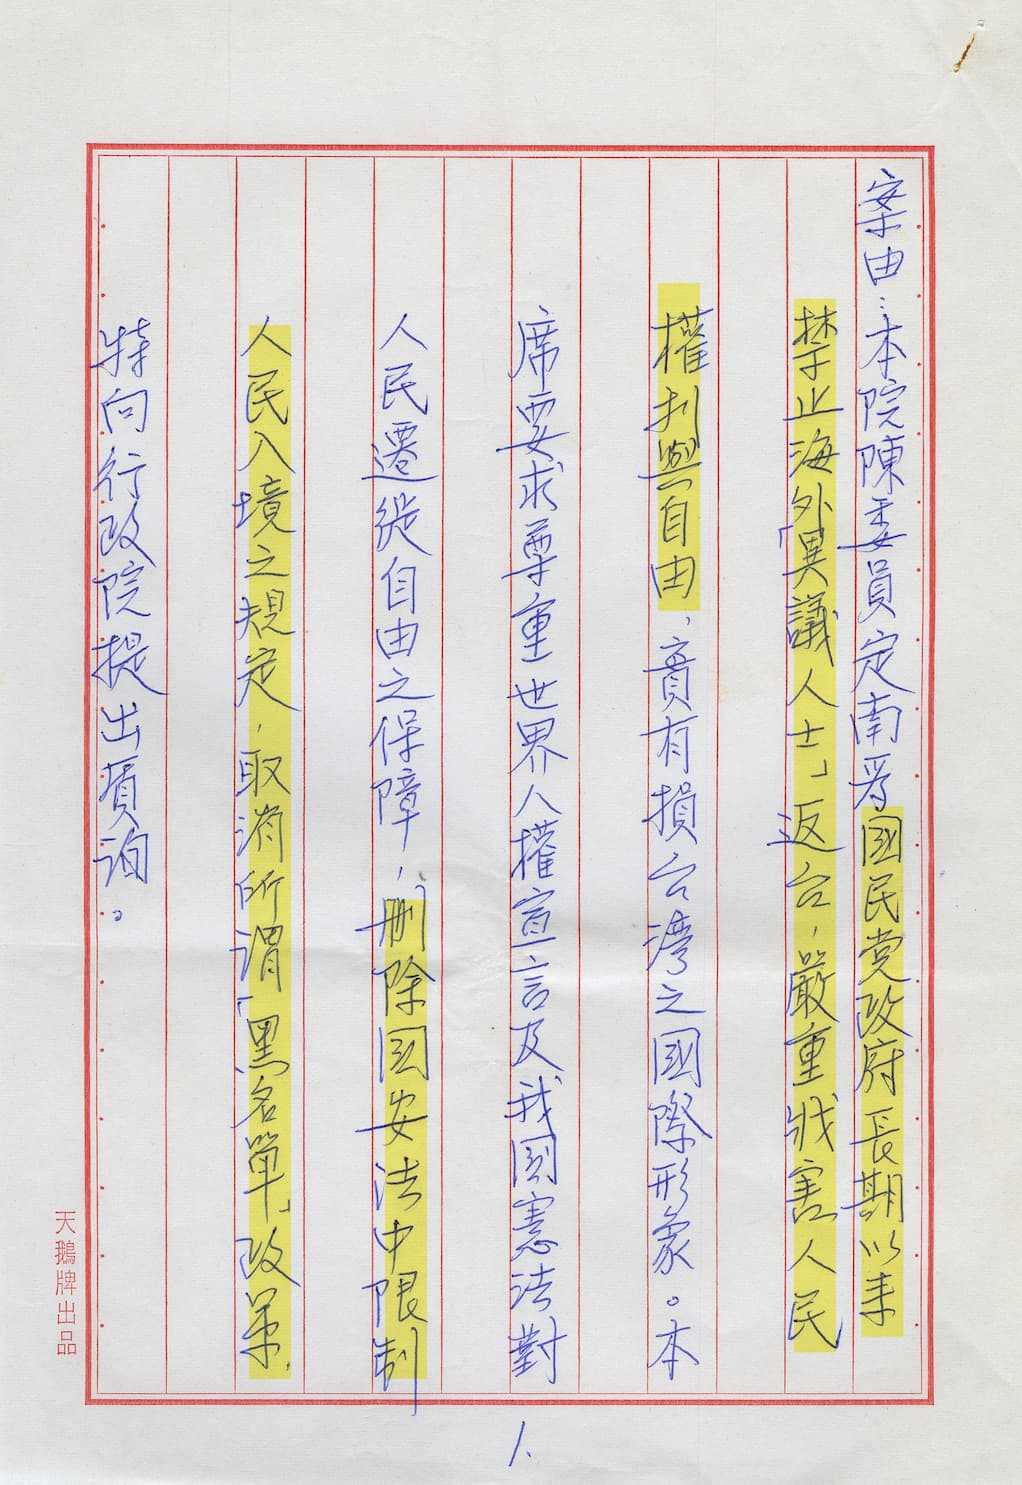 案由：本院陳委員定南為國民党政府長期以来
禁止海外「異議人士」返台，嚴重戕害人民
權利與自由，實有損台灣之國際形象。本
席要求尊重世界人權宣言及我國憲法對
人民遷徙自由之保障，刪除國安法中限制
人民入境之規定，取消所謂「黑名單」政策，
特向行政院提出質詢。
1.
天鵝牌出品